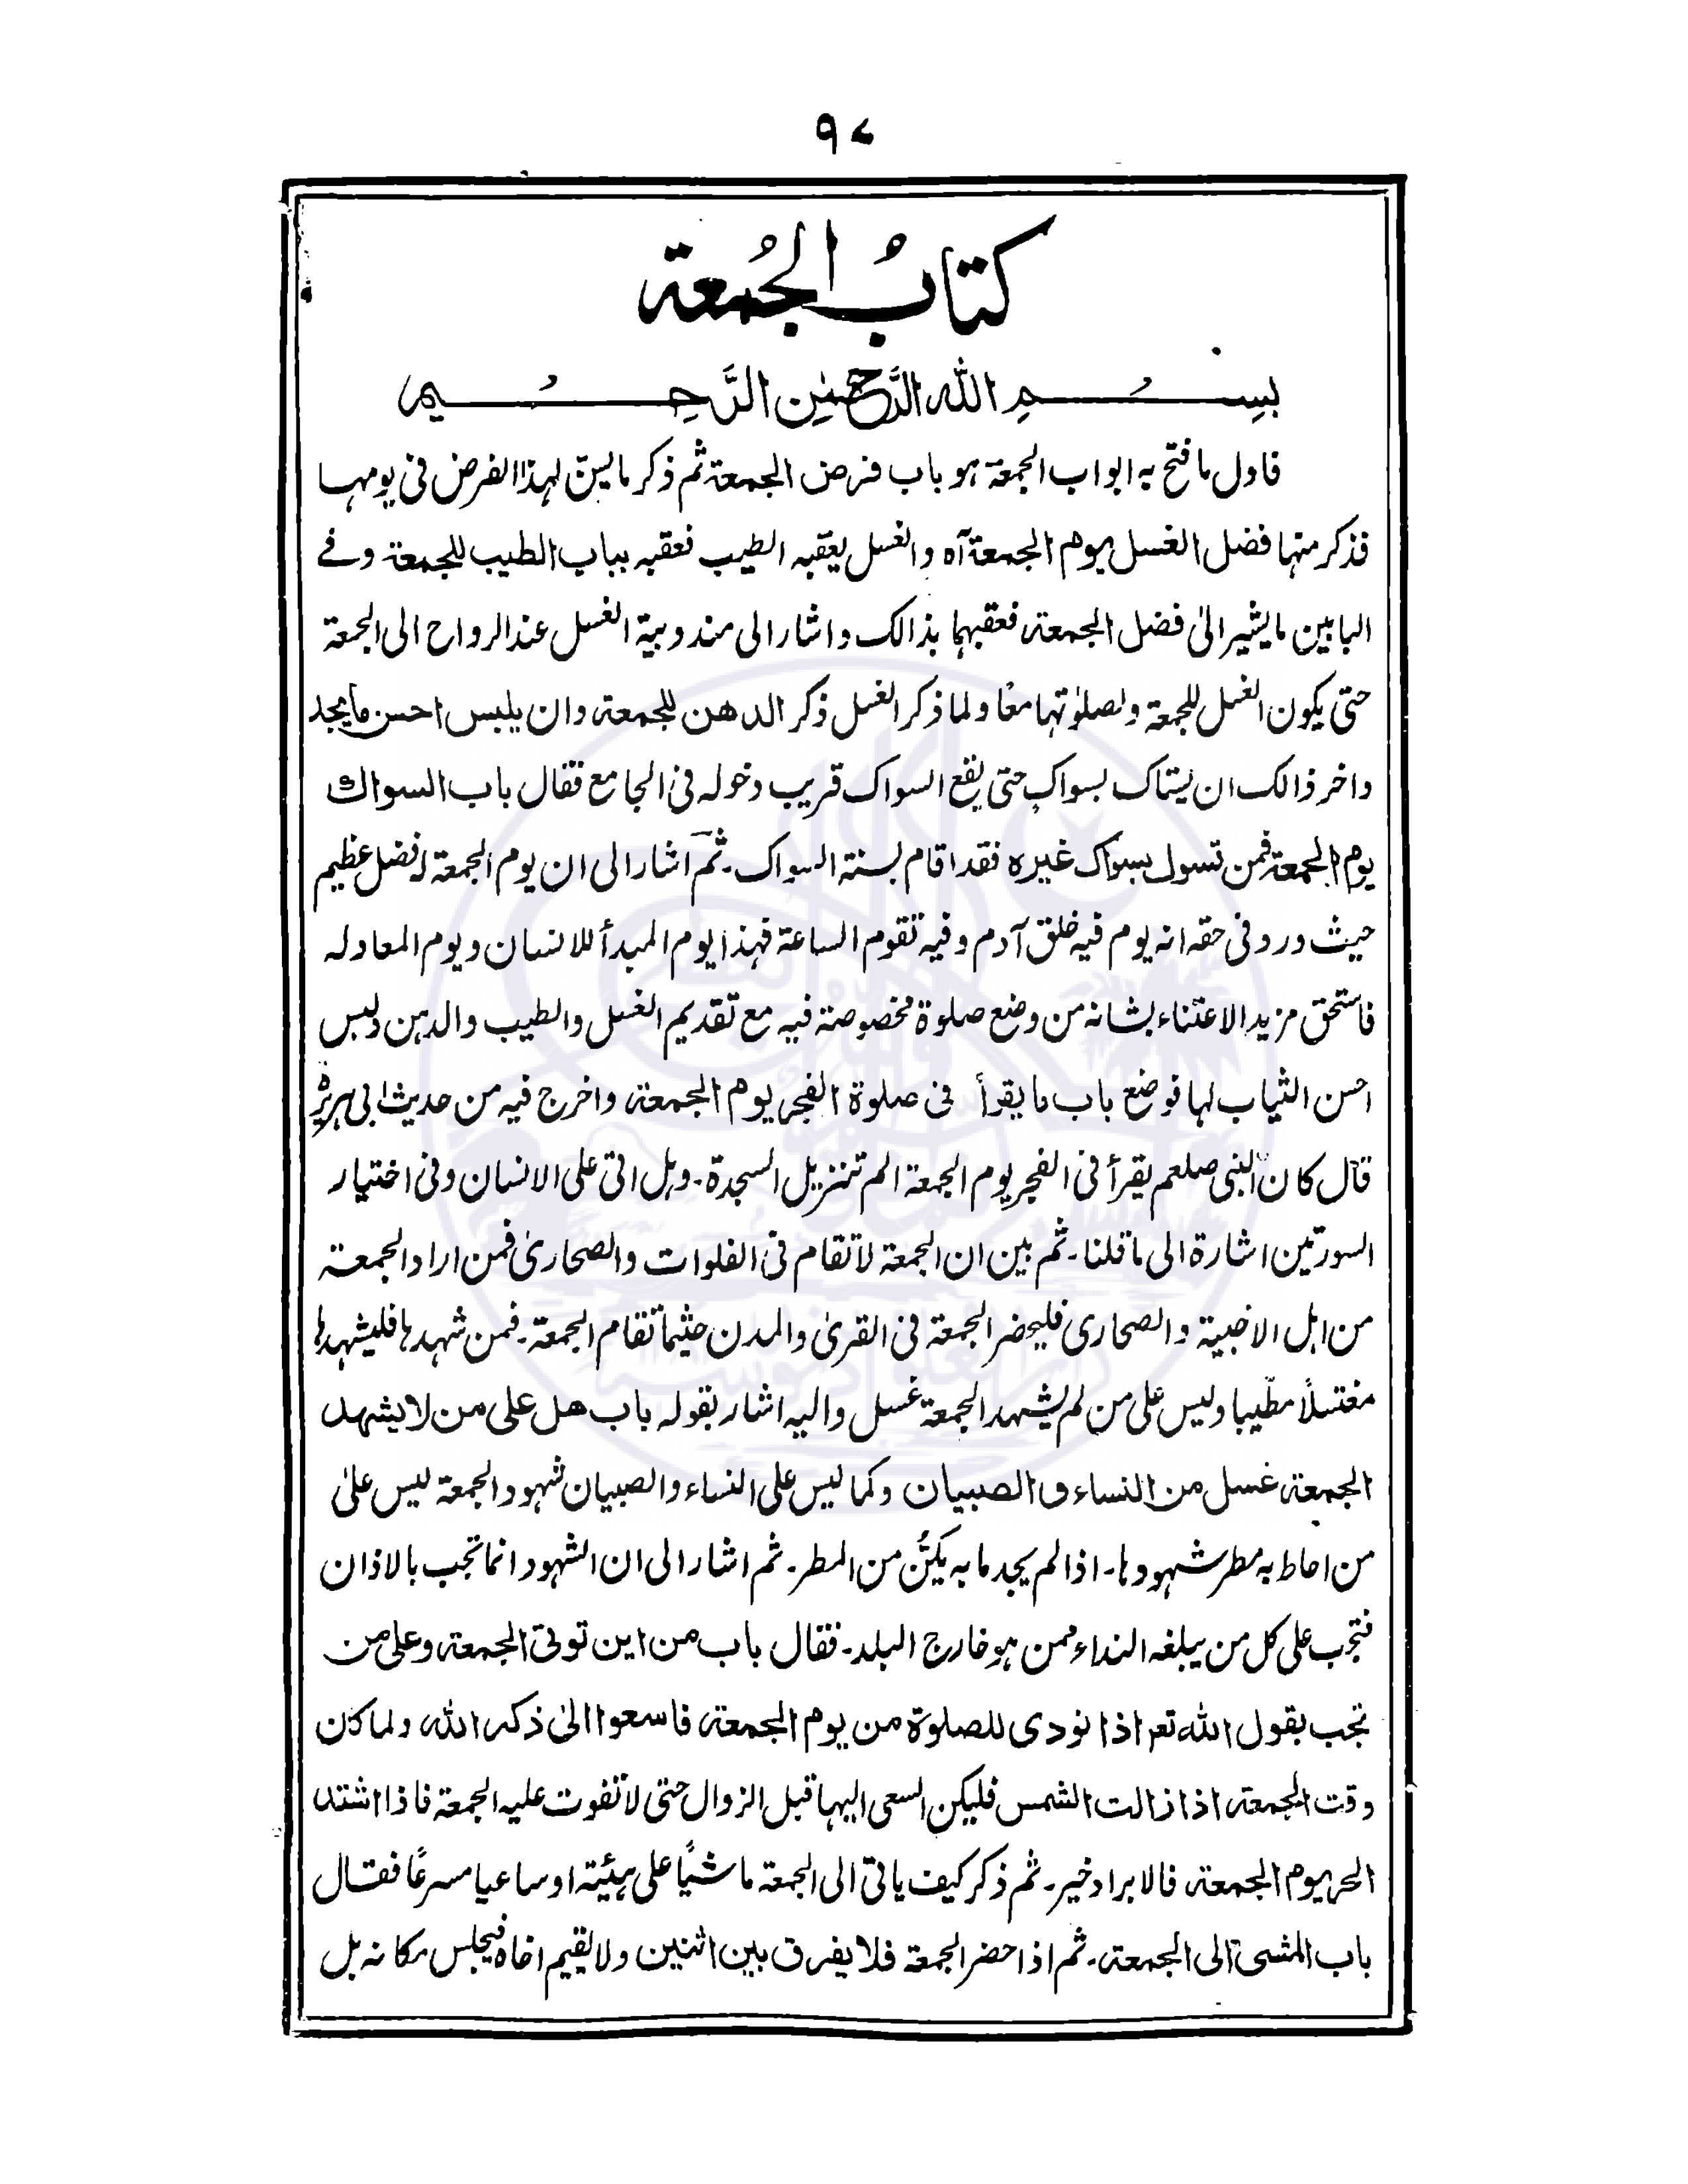 ٩٧
كتابُ الجُمعة
بسم الله الرَّحمٰنِ الرَّحِيم
فاول ما فتح به ابواب الجمعة هو باب فرض الجمعة ثم ذكر ما ليسنّ لهذا الفرض فى يومها
فذكر منها فضل الغسل يوم الجمعة آه والغسل يعقبه الطيب فعقبه بباب الطيب للجمعة وفے
البابين ما يشير الىٰ فضل الجمعة فعقبهما بذالك واشار الى مندوبية الغسل عند الرواح الى الجمعة
حتى يكون الغسل للجمعة ولصلوٰتها معًا ولما ذكر الغسل ذكر الدهن للجمعة وان يلبس احسن ما يجد
واخر ذالك ان يستاك بسواكٍ حتى يقع السواك قريب دخوله فى الجامع فقال باب السواك
يوم الجمعة فمن تسوك بسواك غيره فقد اقام بسنة السواك۔ ثم اشار الى ان يوم الجمعة له فضل عظيم
حيث ورد فى حقه انه يوم فيه خلق آدم وفيه تقوم الساعة فهذا يوم المبدأ للانسان ويوم المعاد له
فاستحق مزيد الاعتناء بشانه من وضع صلوة مخصوصة فيه مع تقديم الغسل والطيب والدهن ولبس
احسن الثياب لها فوضع باب ما يقرأ فى صلوة الفجر يوم الجمعة واخرج فيه من حديث ابى هريرةؓ
قال كان النبى صلعم يقرأ فى الفجر يوم الجمعة الم تنزيل السجدة۔ وهل اتىٰ على الانسان وفى اختيار
السورتين اشارة الى ما قلنا۔ ثم بين ان الجمعة لا تقام فى الفلوات والصحارىٰ فمن اراد الجمعة
من اهل الاخبية والصحارى فليحضر الجمعة فى القرىٰ والمدن حيثما تقام الجمعة۔ فمن شهدها فليشهدها
مغتسلًا مطّيبا وليس على من لم يشهد الجمعة غسل واليه اشار بقوله باب هل على من لا يشهد
الجمعة غسل من النساء والصبيان وكما ليس على النساء والصبيان شهود الجمعة ليس علىٰ
من احاط به مطر شهودها۔ اذا لم يجد ما به يكنُّ من المطر۔ ثم اشار الى ان الشهود انما تجب بالاذان
فتجب على كل من يبلغه النداء ممن هو خارج البلد۔ فقال باب من اين توتى الجمعة وعلى من
تجب بقول الله تعر اذا نودى للصلوة من يوم الجمعة فاسعوا الىٰ ذكر الله ولما كان
وقت الجمعة اذا زالت الشمس فليكن السعى اليها قبل الزوال حتى لا تفوت عليه الجمعة فاذا اشتد
الحر يوم الجمعة فالابراد خير۔ ثم ذكر كيف ياتى الى الجمعة ماشيًا على هيئية او ساعيا مسرعًا فقال
باب المشى الى الجمعة۔ ثم اذا حضر الجمعة فلا يفرق بين اثنين ولا يقيم اخاه فيجلس مكانه بل